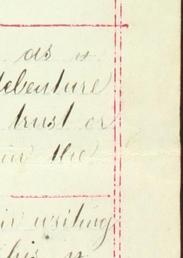 as a
debenture
trust or
in the
in writing
this